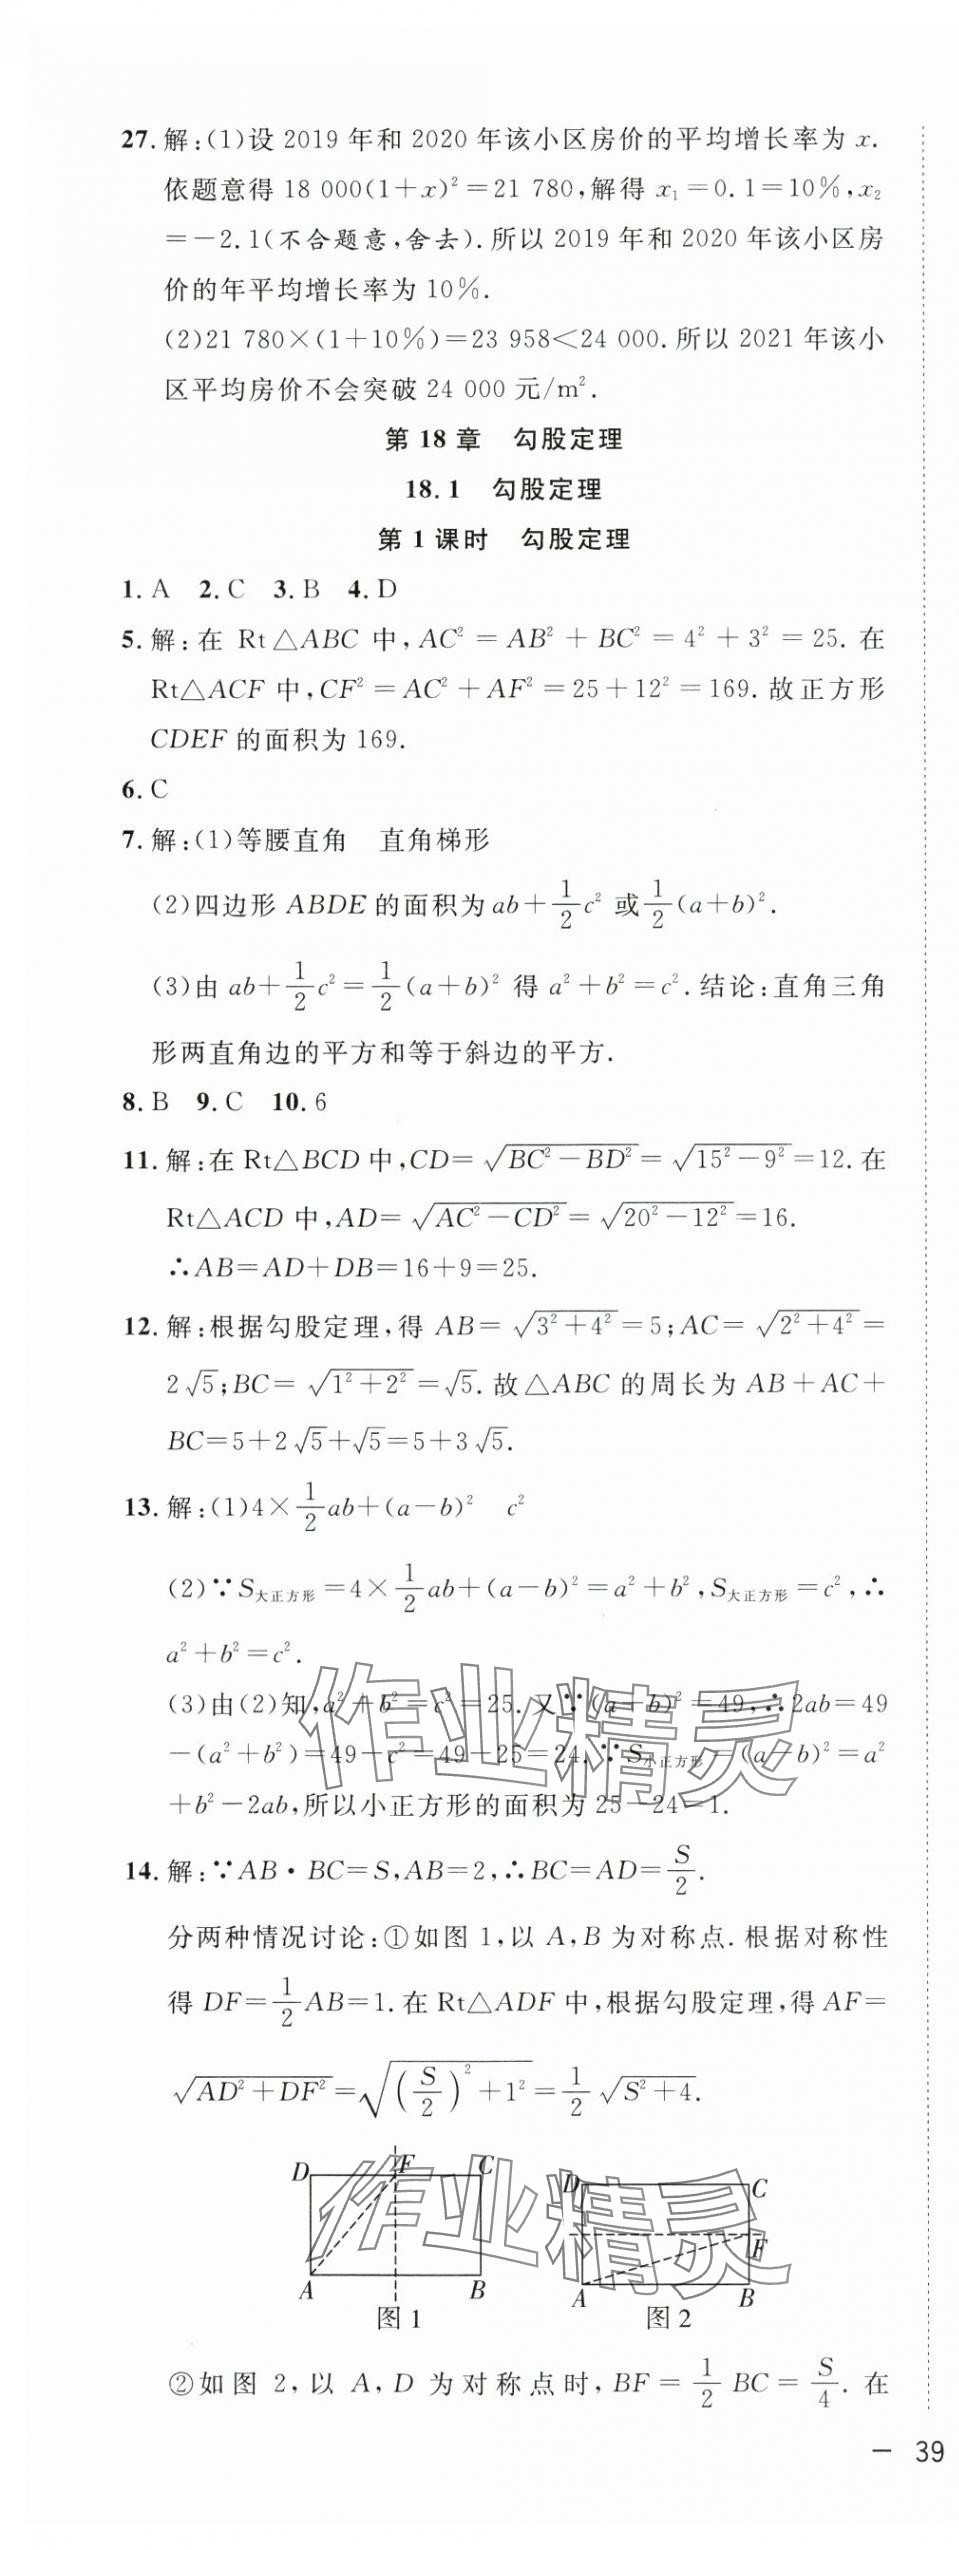 27. 解:(1)设 2019 年和 2020 年该小区房价的平均增长率为 x.
依题意得 18 000(1+x)²=21 780,解得 x₁=0.1=10%,x₂
=-2.1(不合题意,舍去).所以 2019 年和 2020 年该小区房
价的年平均增长率为 10%.
(2)21 780×(1+10%)=23 958<24 000.所以 2021 年该小
区平均房价不会突破 24 000 元/m².
第 18 章 勾股定理
18.1 勾股定理
第 1 课时 勾股定理
1. A 2. C 3. B 4. D
5. 解:在 Rt△ABC 中,AC²=AB²+BC²=4²+3²=25.在
Rt△ACF 中,CF²=AC²+AF²=25+12²=169.故正方形
CDEF 的面积为 169.
6. C
7. 解:(1)等腰直角 直角梯形
(2)四边形 ABDE 的面积为 ab+1/2c² 或 1/2(a+b)².
(3)由 ab+1/2c²=1/2(a+b)² 得 a²+b²=c².结论:直角三角
形两直角边的平方和等于斜边的平方.
8. B 9. C 10. 6
11. 解:在 Rt△BCD 中,CD=√(BC²-BD²)=√(15²-9²)=12.在
Rt△ACD 中,AD=√(AC²-CD²)=√(20²-12²)=16.
∴AB=AD+DB=16+9=25.
12. 解:根据勾股定理,得 AB=√(3²+4²)=5;AC=√(2²+4²)=
2√5;BC=√(1²+2²)=√5.故△ABC 的周长为 AB+AC+
BC=5+2√5+√5=5+3√5.
13. 解:(1)4×1/2ab+(a-b)² c²
(2)∵S大正方形=4×1/2ab+(a-b)²=a²+b²,S大正方形=c²,∴
a²+b²=c².
(3)由(2)知,a²+b²=c²=25.又∵(a+b)²=49,∴2ab=49
-(a²+b²)=49-c²=49-25=24.∵S小正方形=(a-b)²=a²
+b²-2ab,所以小正方形的面积为 25-24=1.
作业精灵
14. 解:∵AB·BC=S,AB=2,∴BC=AD=S/2.
分两种情况讨论:①如图 1,以 A,B 为对称点.根据对称性
得 DF=1/2AB=1.在 Rt△ADF 中,根据勾股定理,得 AF=
√(AD²+DF²)=√((S/2)²+1²)=1/2√(S²+4).
D F C
A B
图 1
D C
F
A B
图 2
作业精灵
②如图 2,以 A,D 为对称点时,BF=1/2BC=S/4.在
— 39